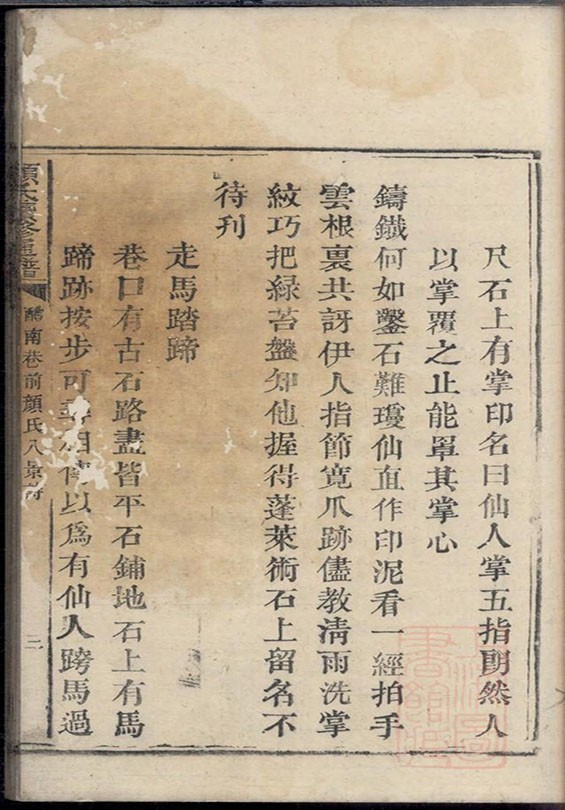 尺石上有掌印名曰仙人掌五指朗然人
以掌覆之止能罩其掌心
鑄鐵何如鑿石難瓊仙直作印泥看一經拍手
雲根裏共訝伊人指節寬爪跡儘教淸雨洗掌
紋巧把緑苔盤知他握得蓬萊術石上留名不
待刊
走馬踏蹄
巷口有古石路盡皆平石鋪地石上有馬
蹄跡按步可尋相傳以爲有仙人跨馬過
顏氏續修通譜
醴南巷前顏氏八景詩
三